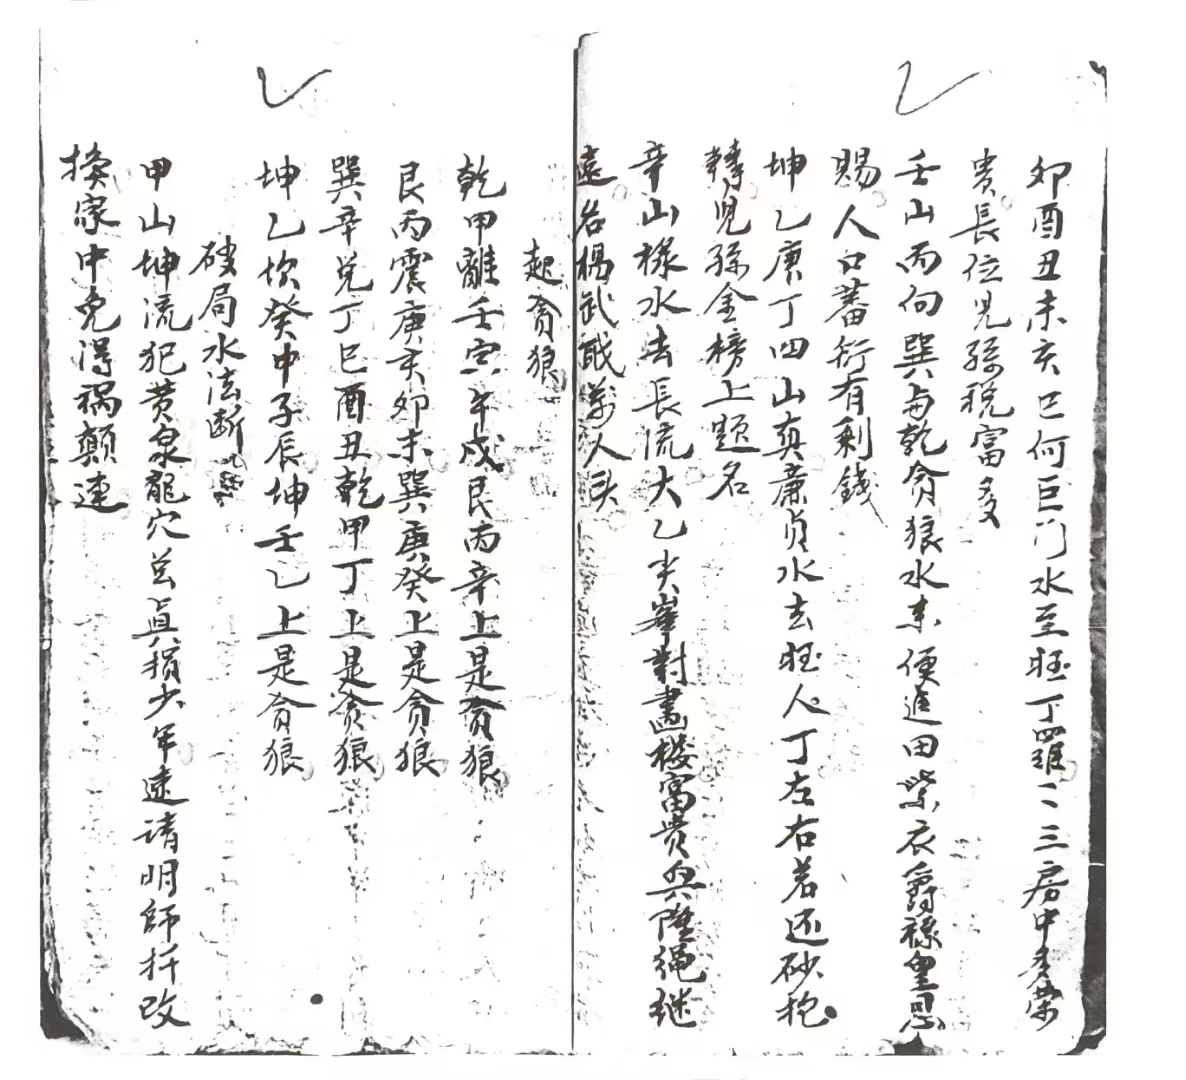 卯酉丑未亥巳何巨门水至旺丁罒维一三房中多荣
贵长位児孫税富多
壬山丙向巽与乾貪狼水来便進田紫衣爵禄皇恩
赐人口蕃衍有剩錢
坤乙庚丁四山真亷貞水去旺人丁左右若还砂抱
轉児孫金榜上题名
辛山椽水去長流大乙尖峯對畫楼富贵兴隆绳继
遠名楊武戝萬人头
起貪狼
乾甲離壬寅午戍艮丙辛上是貪狼
艮丙震庚亥卯未巽庚癸上是貪狼
巽辛兑丁巳酉丑乾甲丁上是貪狼
坤乙坎癸申子辰坤壬乙上是貪狼
破局水法断
甲山坤流犯黄泉龍穴总真损少年速請明師扦改
换家中免淂禍顛連